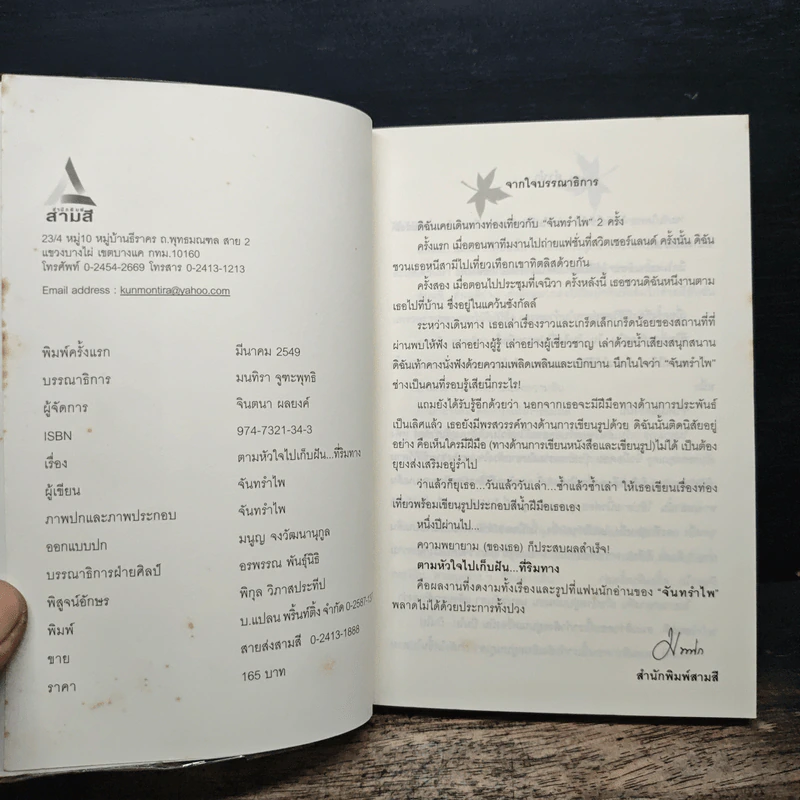 สำนักพิมพ์
สามสี
23/4 หมู่10 หมู่บ้านธีราคร ถ.พุทธมณฑล สาย 2
แขวงบางไผ่ เขตบางแค กทม.10160
โทรศัพท์ 0-2454-2669 โทรสาร 0-2413-1213
Email address : kunmontira@yahoo.com
พิมพ์ครั้งแรก มีนาคม 2549
บรรณาธิการ มนทิรา จูฑะพุทธิ
ผู้จัดการ จินตนา ผลยงค์
ISBN 974-7321-34-3
เรื่อง ตามหัวใจไปเก็บฝัน...ที่ริมทาง
ผู้เขียน จันทรำไพ
ภาพปกและภาพประกอบ จันทรำไพ
ออกแบบปก มนูญ จงวัฒนานุกูล
บรรณาธิการฝ่ายศิลป์ อรพรรณ พันธุ์นิธิ
พิสูจน์อักษร พิกุล วิภาสประทีป
พิมพ์ บ.แปลน พริ้นท์ติ้ง จำกัด
ขาย สายส่งสามสี 0-2413-1888
ราคา 165 บาท
จากใจบรรณาธิการ
ดิฉันเคยเดินทางท่องเที่ยวกับ “จันทรำไพ” 2 ครั้ง
ครั้งแรก เมื่อตอนพาทีมงานไปถ่ายแฟชั่นที่สวิตเซอร์แลนด์ ครั้งนั้น ดิฉัน
ชวนเธอหนีสามีไปเที่ยวเทือกเขาทิตลิสด้วยกัน
ครั้งสอง เมื่อตอนไปประชุมที่เจนีวา ครั้งหลังนี้ เธอชวนดิฉันหนีงานตาม
เธอไปที่บ้าน ซึ่งอยู่ในแคว้นซังกัลล์
ระหว่างเดินทาง เธอเล่าเรื่องราวและเกร็ดเล็กเกร็ดน้อยของสถานที่ที่
ผ่านพบให้ฟัง เล่าอย่างผู้รู้ เล่าอย่างผู้เชี่ยวชาญ เล่าด้วยน้ำเสียงสนุกสนาน
ดิฉันเท้าคางนั่งฟังด้วยความเพลิดเพลินและเบิกบาน นึกในใจว่า “จันทรำไพ”
ช่างเป็นคนที่รอบรู้เสียนี่กระไร!
แถมยังได้รับรู้อีกด้วยว่า นอกจากเธอจะมีฝีมือทางด้านการประพันธ์
เป็นเลิศแล้ว เธอยังมีพรสวรรค์ทางด้านการเขียนรูปด้วย ดิฉันนั้นติดนิสัยอยู่
อย่าง คือเห็นใครมีฝีมือ (ทางด้านการเขียนหนังสือและเขียนรูป)ไม่ได้ เป็นต้อง
ยุยงส่งเสริมอยู่ร่ำไป
ว่าแล้วก็ยุเธอ...วันแล้ววันเล่า...ซ้ำแล้วซ้ำเล่า ให้เธอเขียนเรื่องท่อง
เที่ยวพร้อมเขียนรูปประกอบสีน้ำฝีมือเธอเอง
หนึ่งปีผ่านไป...
ความพยายาม (ของเธอ) ก็ประสบผลสำเร็จ!
ตามหัวใจไปเก็บฝัน...ที่ริมทาง
คือผลงานที่งดงามทั้งเรื่องและรูปที่แฟนนักอ่านของ “จันทรำไพ”
พลาดไม่ได้ด้วยประการทั้งปวง
สำนักพิมพ์สามสี